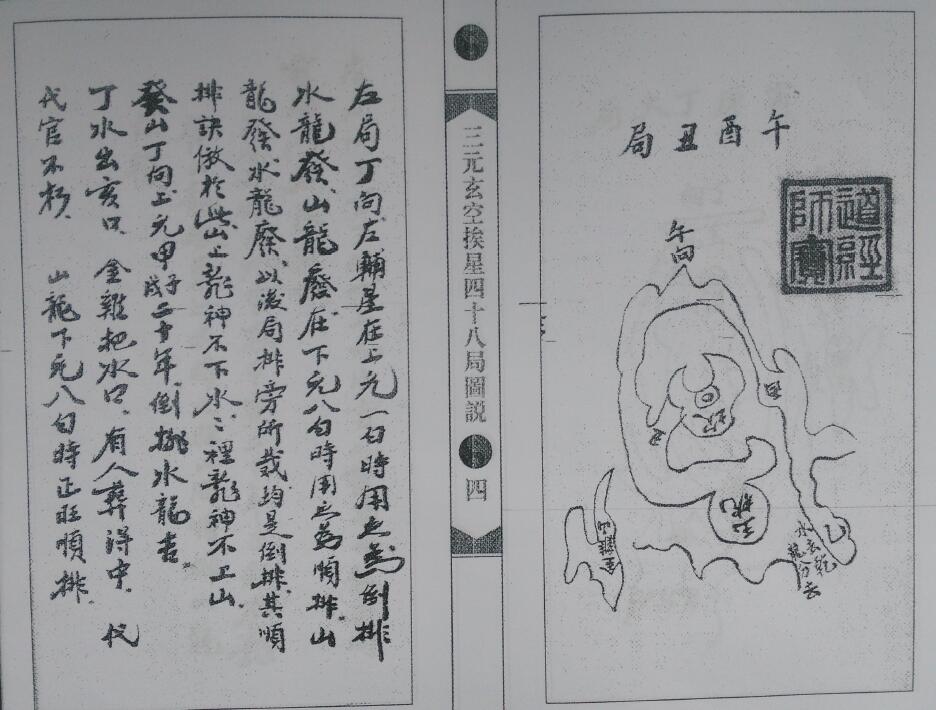 午酉丑局
道經師寶
午向
酉
丑
玉瓶
金雞山
水去乾
龍分去
三元玄空挨星四十八局圖説
四
左局丁向左輔星在上元一白時用之為倒排
水龍發、山龍廢在下元八白時用之為順排。山
龍發水龍廢、以後局排旁所裁均是倒排、其順
排訣倣於此、山上龍神不下水、水裡龍神不上山、
癸山丁向上元甲子戌二十年、倒排水龍吉。
丁水出亥口、金雞把水口、有人葬得中、代
代官不朽、山龍下元八白時正旺順排、